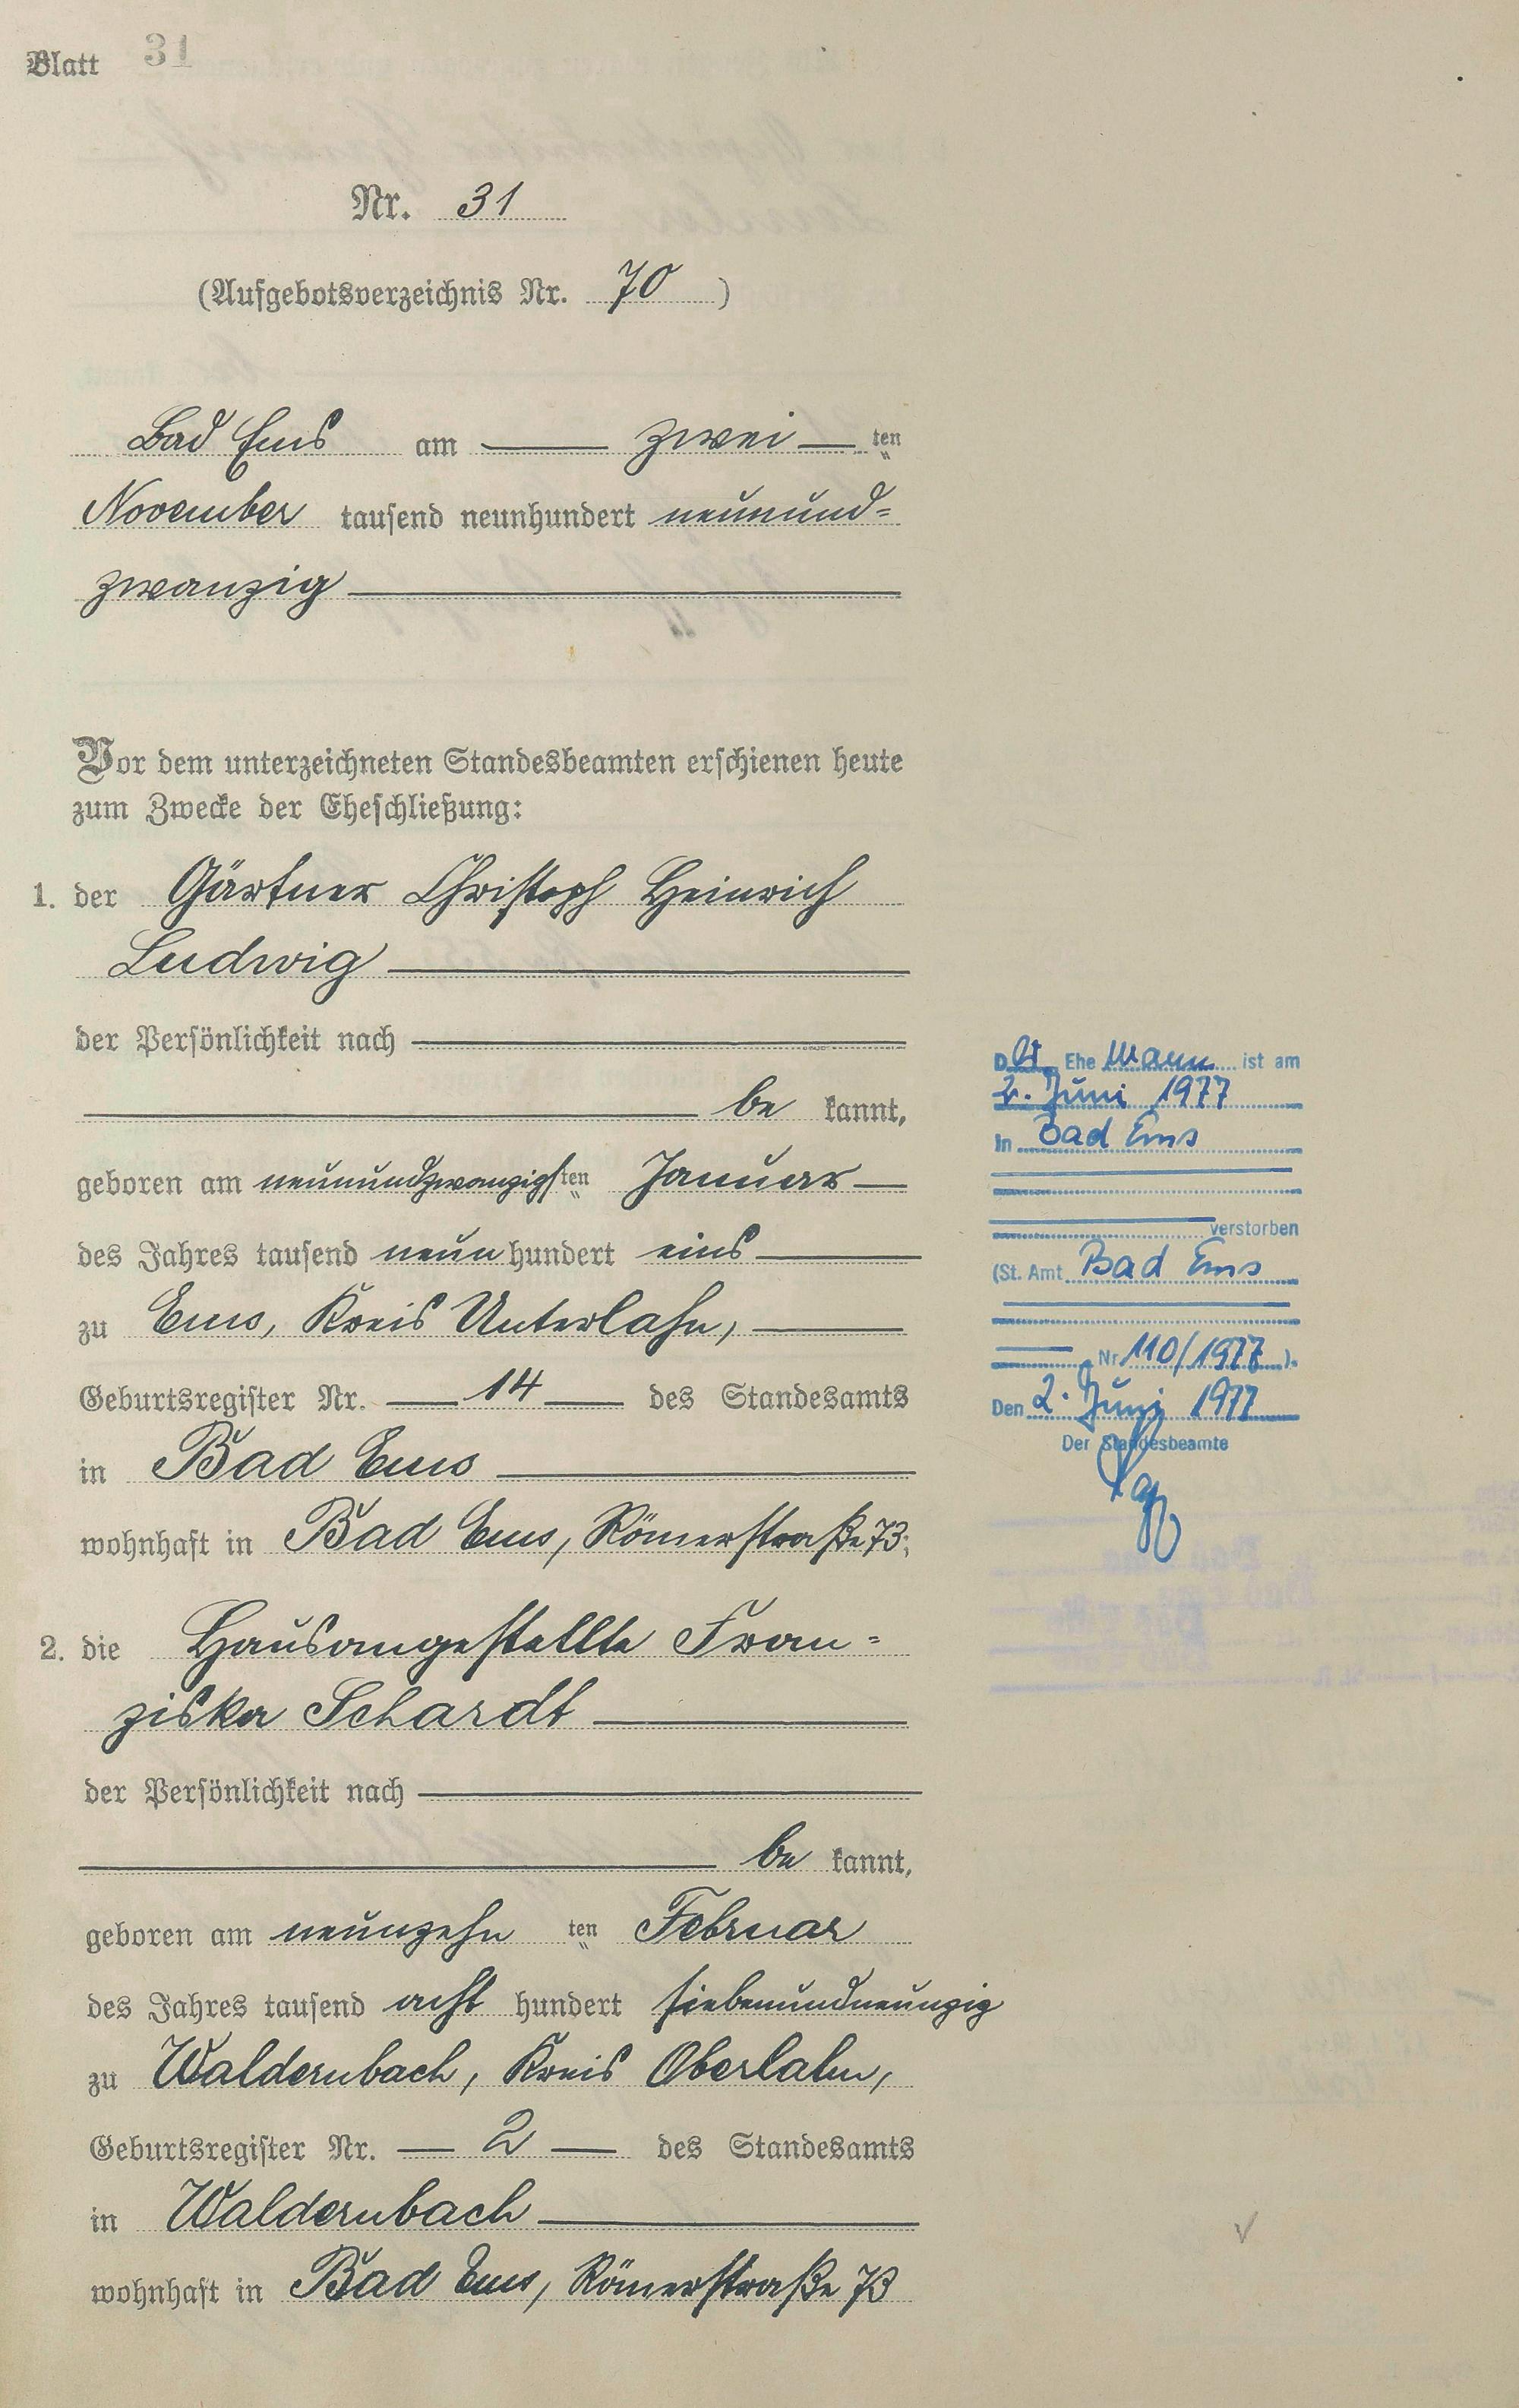 Blatt 31
Nr. 31
(Aufgebotsverzeichnis Nr. 70)
Bad Ems am zwei ten
November tausend neunhundert neunund=
zwanzig
Vor dem unterzeichneten Standesbeamten erschienen heute
zum Zwecke der Eheschließung:
1. der Gärtner Christoph Heinrich
Ludwig
der Persönlichkeit nach
be kannt,
geboren am neunundzwanzigsten Januar
des Jahres tausend neun hundert eins
zu Ems, Kreis Unterlahn,
Geburtsregister Nr. 14 des Standesamts
in Bad Ems
wohnhaft in Bad Ems, Römerstraße 73;
2. die Hausangestellte Fran=
ziska Schardt
der Persönlichkeit nach
be kannt,
geboren am neunzehn ten Februar
des Jahres tausend acht hundert siebenundneunzig
zu Waldernbach, Kreis Oberlahn,
Geburtsregister Nr. 2 des Standesamts
in Waldernbach
wohnhaft in Bad Ems, Römerstraße 73
Der Ehe Mann ist am
2. Juni 1977
in Bad Ems
verstorben
(St. Amt Bad Ems
Nr 110/1977).
Den 2. Juni 1977
Der Standesbeamte